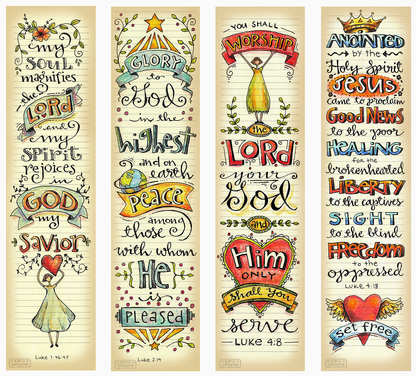 my
SOUL
magnifies
the
LORD
and
my
SPIRIT
rejoices
in
GOD
my
Savior
Luke 1:46-47
GLORY
to
God
in the
highest
and on
earth
PEACE
among
those
with whom
HE
is
PLEASED
Luke 2:14
YOU SHALL
WORSHIP
the
LORD
your
God
and
Him
ONLY
shall You
serve
LUKE 4:8
ANOINTED
by the
Holy Spirit
JESUS
came to proclaim
Good News
to the poor
HEALING
for the
brokenhearted
LIBERTY
to the captives
SIGHT
to the blind
FREEDOM
to the
oppressed
LUKE 4:18
set free